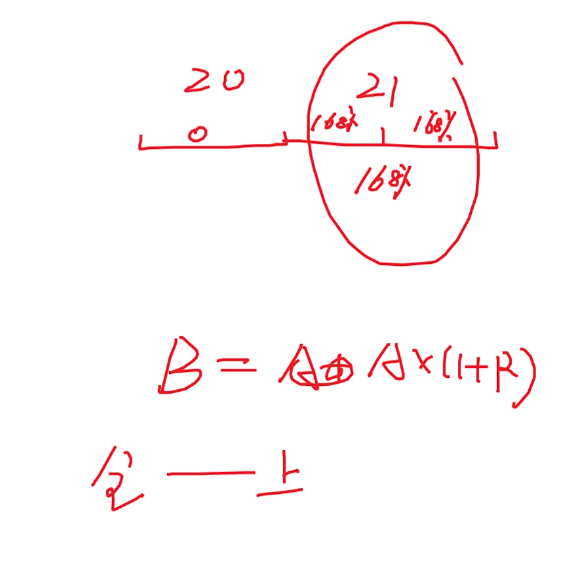 20 21
0 168% 168%
168%
B = A A×(1+R)
上